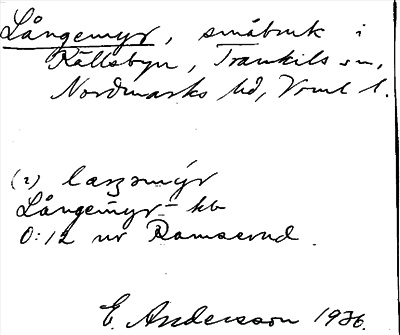 Långemyr, småbruk i
Källsbyn, Trankils sn,
Nordmarks hd, Vrml l.
(2) laŋəmýr
Långemyr - kb
0:12 nr Ramserud.
E. Andersson 1936.